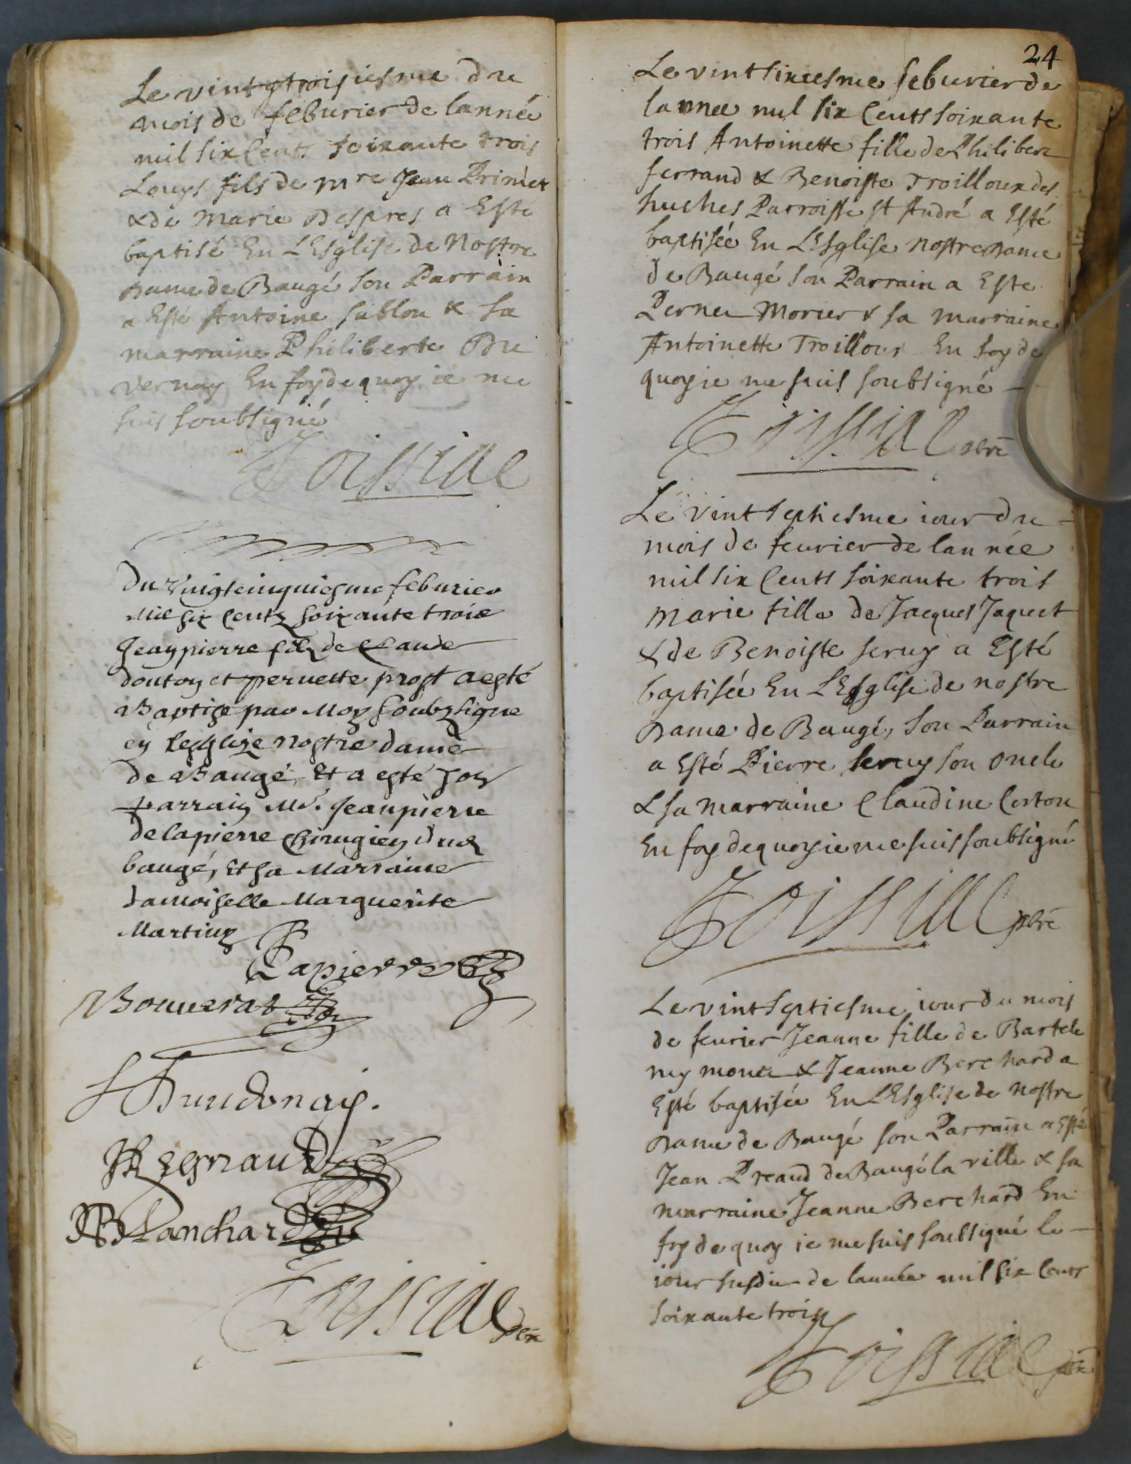 Le vint et troisiesme du
mois de feburier de lannée
mil six Cent soixante trois
Louys fils de mre Jean Primet
& de Marie Despres a Esté
baptisé En LEsglise de Nostre
Dame de Baugé Son Parrain
a Esté Antoine Sablon & sa
marraine Philiberte Du
vernay En foy de quoy ie me
suis soubsigné
Toissiae
Du vingtcinquiesme feburier
Mil six Centz soixante troie
Jeanpierre filz de Claude
doutoy et pernette prost a esté
Baptizé par Moy soubzsigne
en lesglize nostre dame
de Baugé, Et a esté son
parrain Mr. Jeanpierre
delapierre Chirugien dud
baugé, Et sa Marraine
damoiselle Marguerite
Martine
Lapierre
Bouuerat
Regnaud
Blanchard
Toissiae pbre
24
Le vintsixiesme feburier de
lannee mil six Cents soixante
trois Antoinette fille de Philibert
ferrand & Benoiste Troilloux des
huches Parroisse st André a Esté
baptisée En LEsglise nostre Dame
de Baugé son Parrain a Esté
Pernet Morier & sa marraine
Antoinette Troilloux En foy de
quoy ie me suis soubsigné
Toissiae pbre
Le vintseptiesme iour du
mois de feurier de lannée
mil six Cents soixante trois
marie fille de Jacques Jaquet
& de Benoiste seruy a Esté
baptisée En LEsglise de nostre
Dame de Baugé, son Parrain
a Esté Pierre seruy son oncle
& sa marraine Claudine Corton
En foy de quoy ie me suis soubsigné
Toissiae pbre
Le vintseptiesme iour du mois
de feurier Jeanne fille de Bartele
my monet & Jeanne Berchard a
Esté baptisée En LEsglise de Nostre
Dame de Baugé son Parrain a Esté
Jean Preaud de Baugé la ville & sa
marraine Jeanne Berchard En
foy de quoy ie me suis soubsigné le
iour susdit de lannée mil six Cents
soixante trois
Toissiae pbre